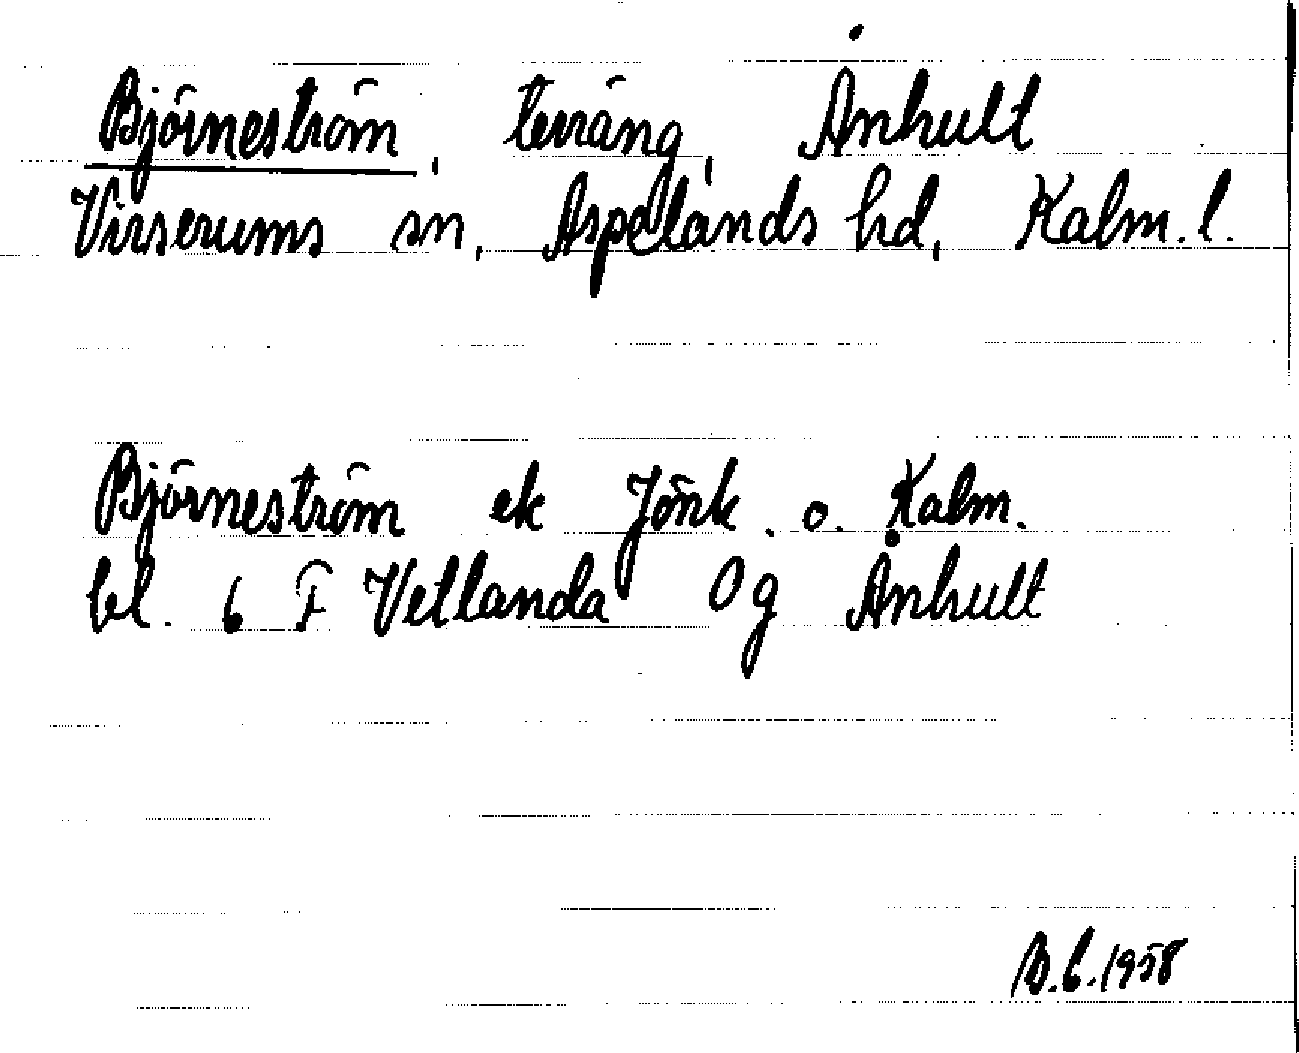 Björneström, terräng, Ånhult
Virserums sn, Aspelands hd, Kalm. l.
Björneström ek Jönk. o. Kalm.
bl. 6 F Vetlanda 0g Ånhult
B.E. 1958